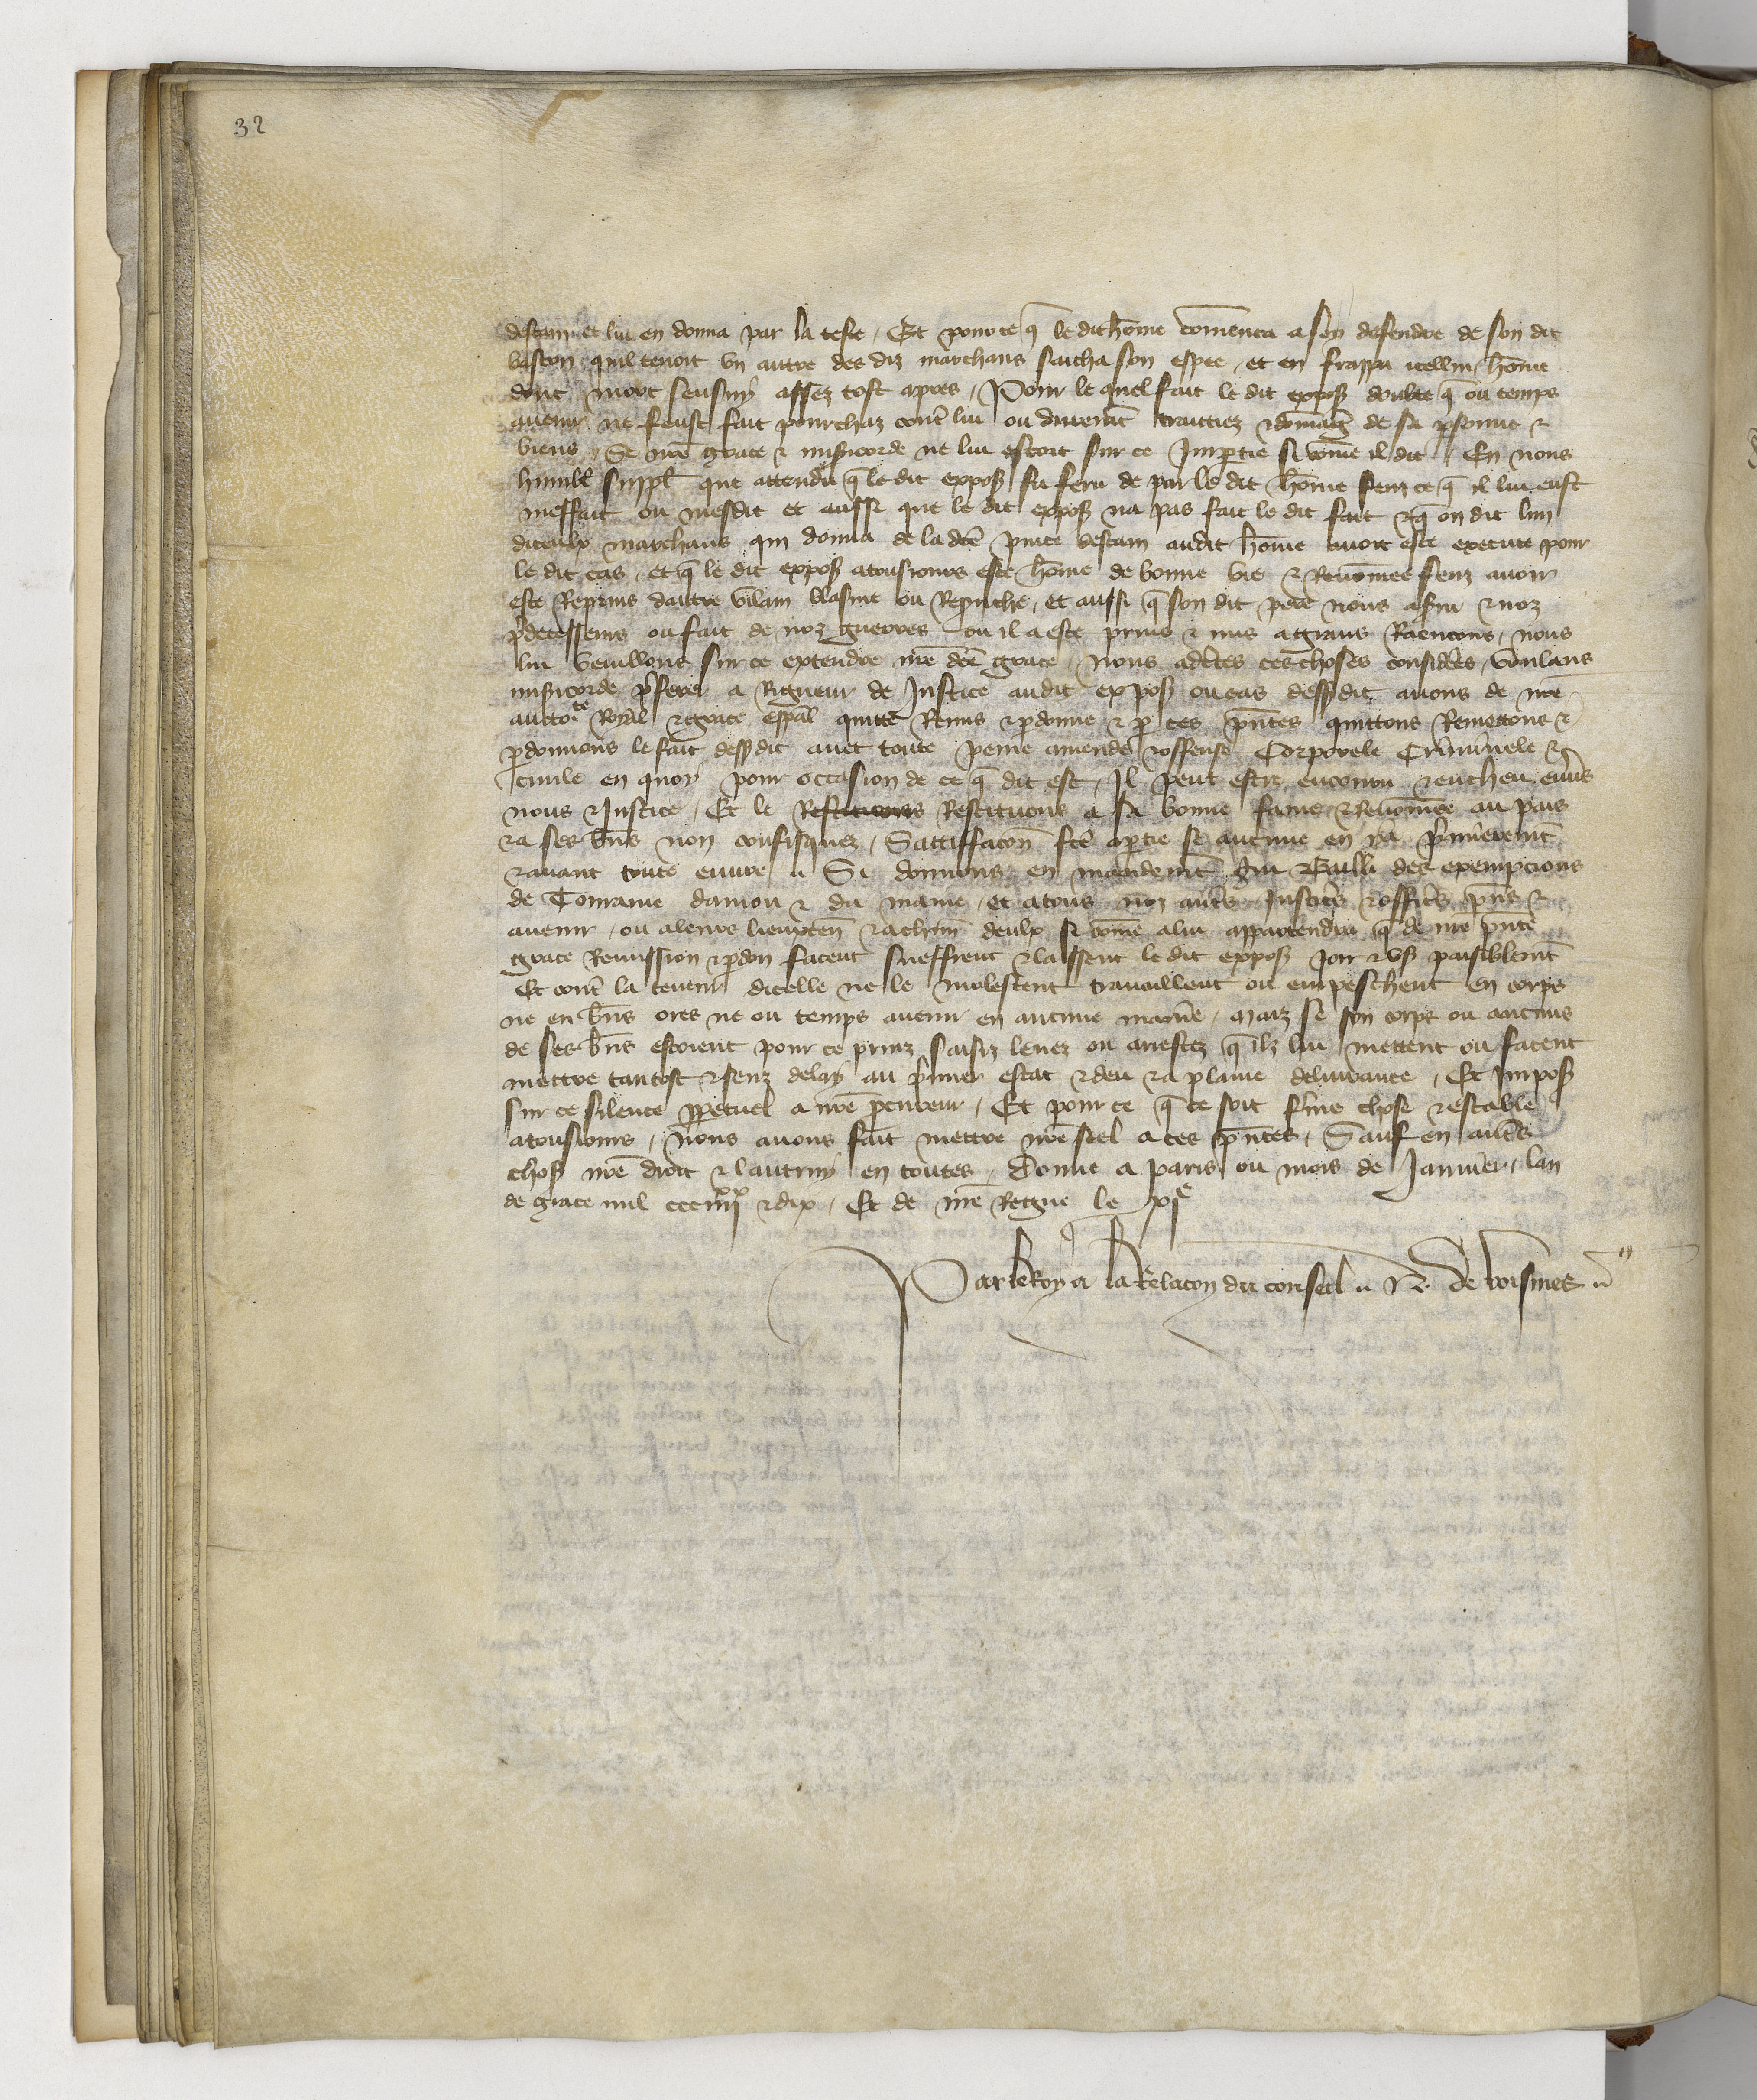 32
destain et lui en donna par la teste / Et pource q̄ le dit hōme cōmenca a soy defendre de son dit
baston quil tenoit vn autre des diz marchans sacha son espee / et en frappa icellui hōme
dont mort sensuy assez tost apres / Pour le quel fait le dit expos doubte q̄ ou temps
auenir ne feust fait pourchaz contr̄ lui ou durem̄t traittiez ⁊ domaiḡ de sa psonne ⁊
biens / Se nr̄e grace ⁊ mīsicorde ne lui estoit sur ce Impartie si cōme il dit / En nous
humbl̄ suppl̄ que attendu q̄ le dit expos fu feru de par le dit hōme senz ce q̄ il lui eust
meffait ou mesdit et aussi que le dit expos na pas fait le dit fait ⁊ q̄ on dit lun
diceulx marchans qui donna de la dc̄e pinte destain audit hōme auoir este execute pour
le dit cas / et q̄ le dit expos a tousiours este hōme de bonne vie ⁊ Renōmee senz auoir
este Reprins dautre vilain blasme ou Repruche / et aussi q̄ son dit pere nous a s̄ui ⁊ noz
p̄decesseurs ou fait de noz guerres ou il a este prins ⁊ mis a grans Raencons / nous
lui veuillons sur ce extendre nr̄e dc̄e grace / Nous adc̄tes ces choses considēs / voulans
mīsicorde p̄ferer a Rigueur de Justice audit expos ou cas dess̄dit auons de nr̄e
auctorte Royal ⁊ grace esp̄al quitte Remis ⁊ pdonne ⁊ p ces pn̄tes quittons Remettons ⁊
pdonnons le fait dess̄dit auec toute peine amende ⁊ offense Corporele Criminele ⁊
ciuile en quoy pour occasion de ce q̄ dit est / Il peut estre encouru ⁊ encheu enūs
nous ⁊ Justice / Et le Restituons Restituons a sa bonne fame ⁊ Renōmee au pais
⁊ a ses bn̄s non confisquez / Sattiffacon fcē a ptie se aucune en ya p̄mierem̄t
⁊ auant toute euure // Si donnons en mandem̄t au Bailli des exempcions
de Touraine danjou ⁊ du maine / et a tous noz aut̄s Justic̄s ⁊ offic̄s pn̄s ⁊
auenir / ou a leurs lieuxten̄ ⁊ a chūn deulx si cōme a lui appartendra q̄ de nr̄e pn̄te
grace Remission ⁊ pdon facent sueffrent ⁊ laissent le dit expos Joir ⁊ vs paisiblem̄t
Et contr̄ la teneur dicelle ne le molestent trauaillent ou empeschent en corps
ne en bn̄s ores ne ou temps auenir en aucune manie͂ / maiz se son corps ou aucuns
de ses bn̄s estoient pour ce prinz saisiz leuez ou arrestez q̄ ilz lui mettent ou facent
mettre tantost ⁊ senz delay au p̄mier estat ⁊ deu ⁊ a plaine deliurance / Et Impos
sur ce silence ppetuel a nr̄e pcureur / Et pour ce q̄ ce soit ferme chose ⁊ estable
a tousiours / Nous auons fait mettre nr̄e seel a ces pn̄tes / Sauf en aut̄s
chos nr̄e droit ⁊ lautruy en toutes / Donne a paris ou mois de Januier / lan
de grace mil ccc iiiixx ⁊ dix / Et de nr̄e Regne le xje
Par le Roy a la Relacon du conseil // N. de voisines //